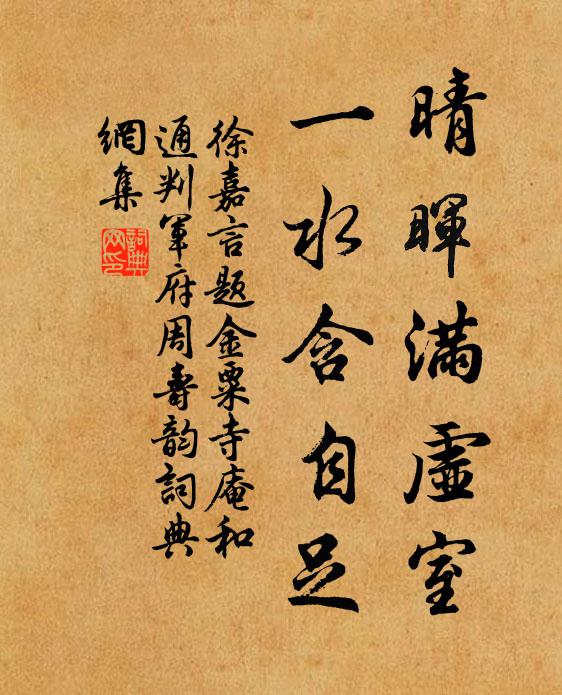 晴暉滿虛室
一水含自足
徐嘉言題金粟寺庵和
通判軍府周壽韵詞典
網集
詞典網印